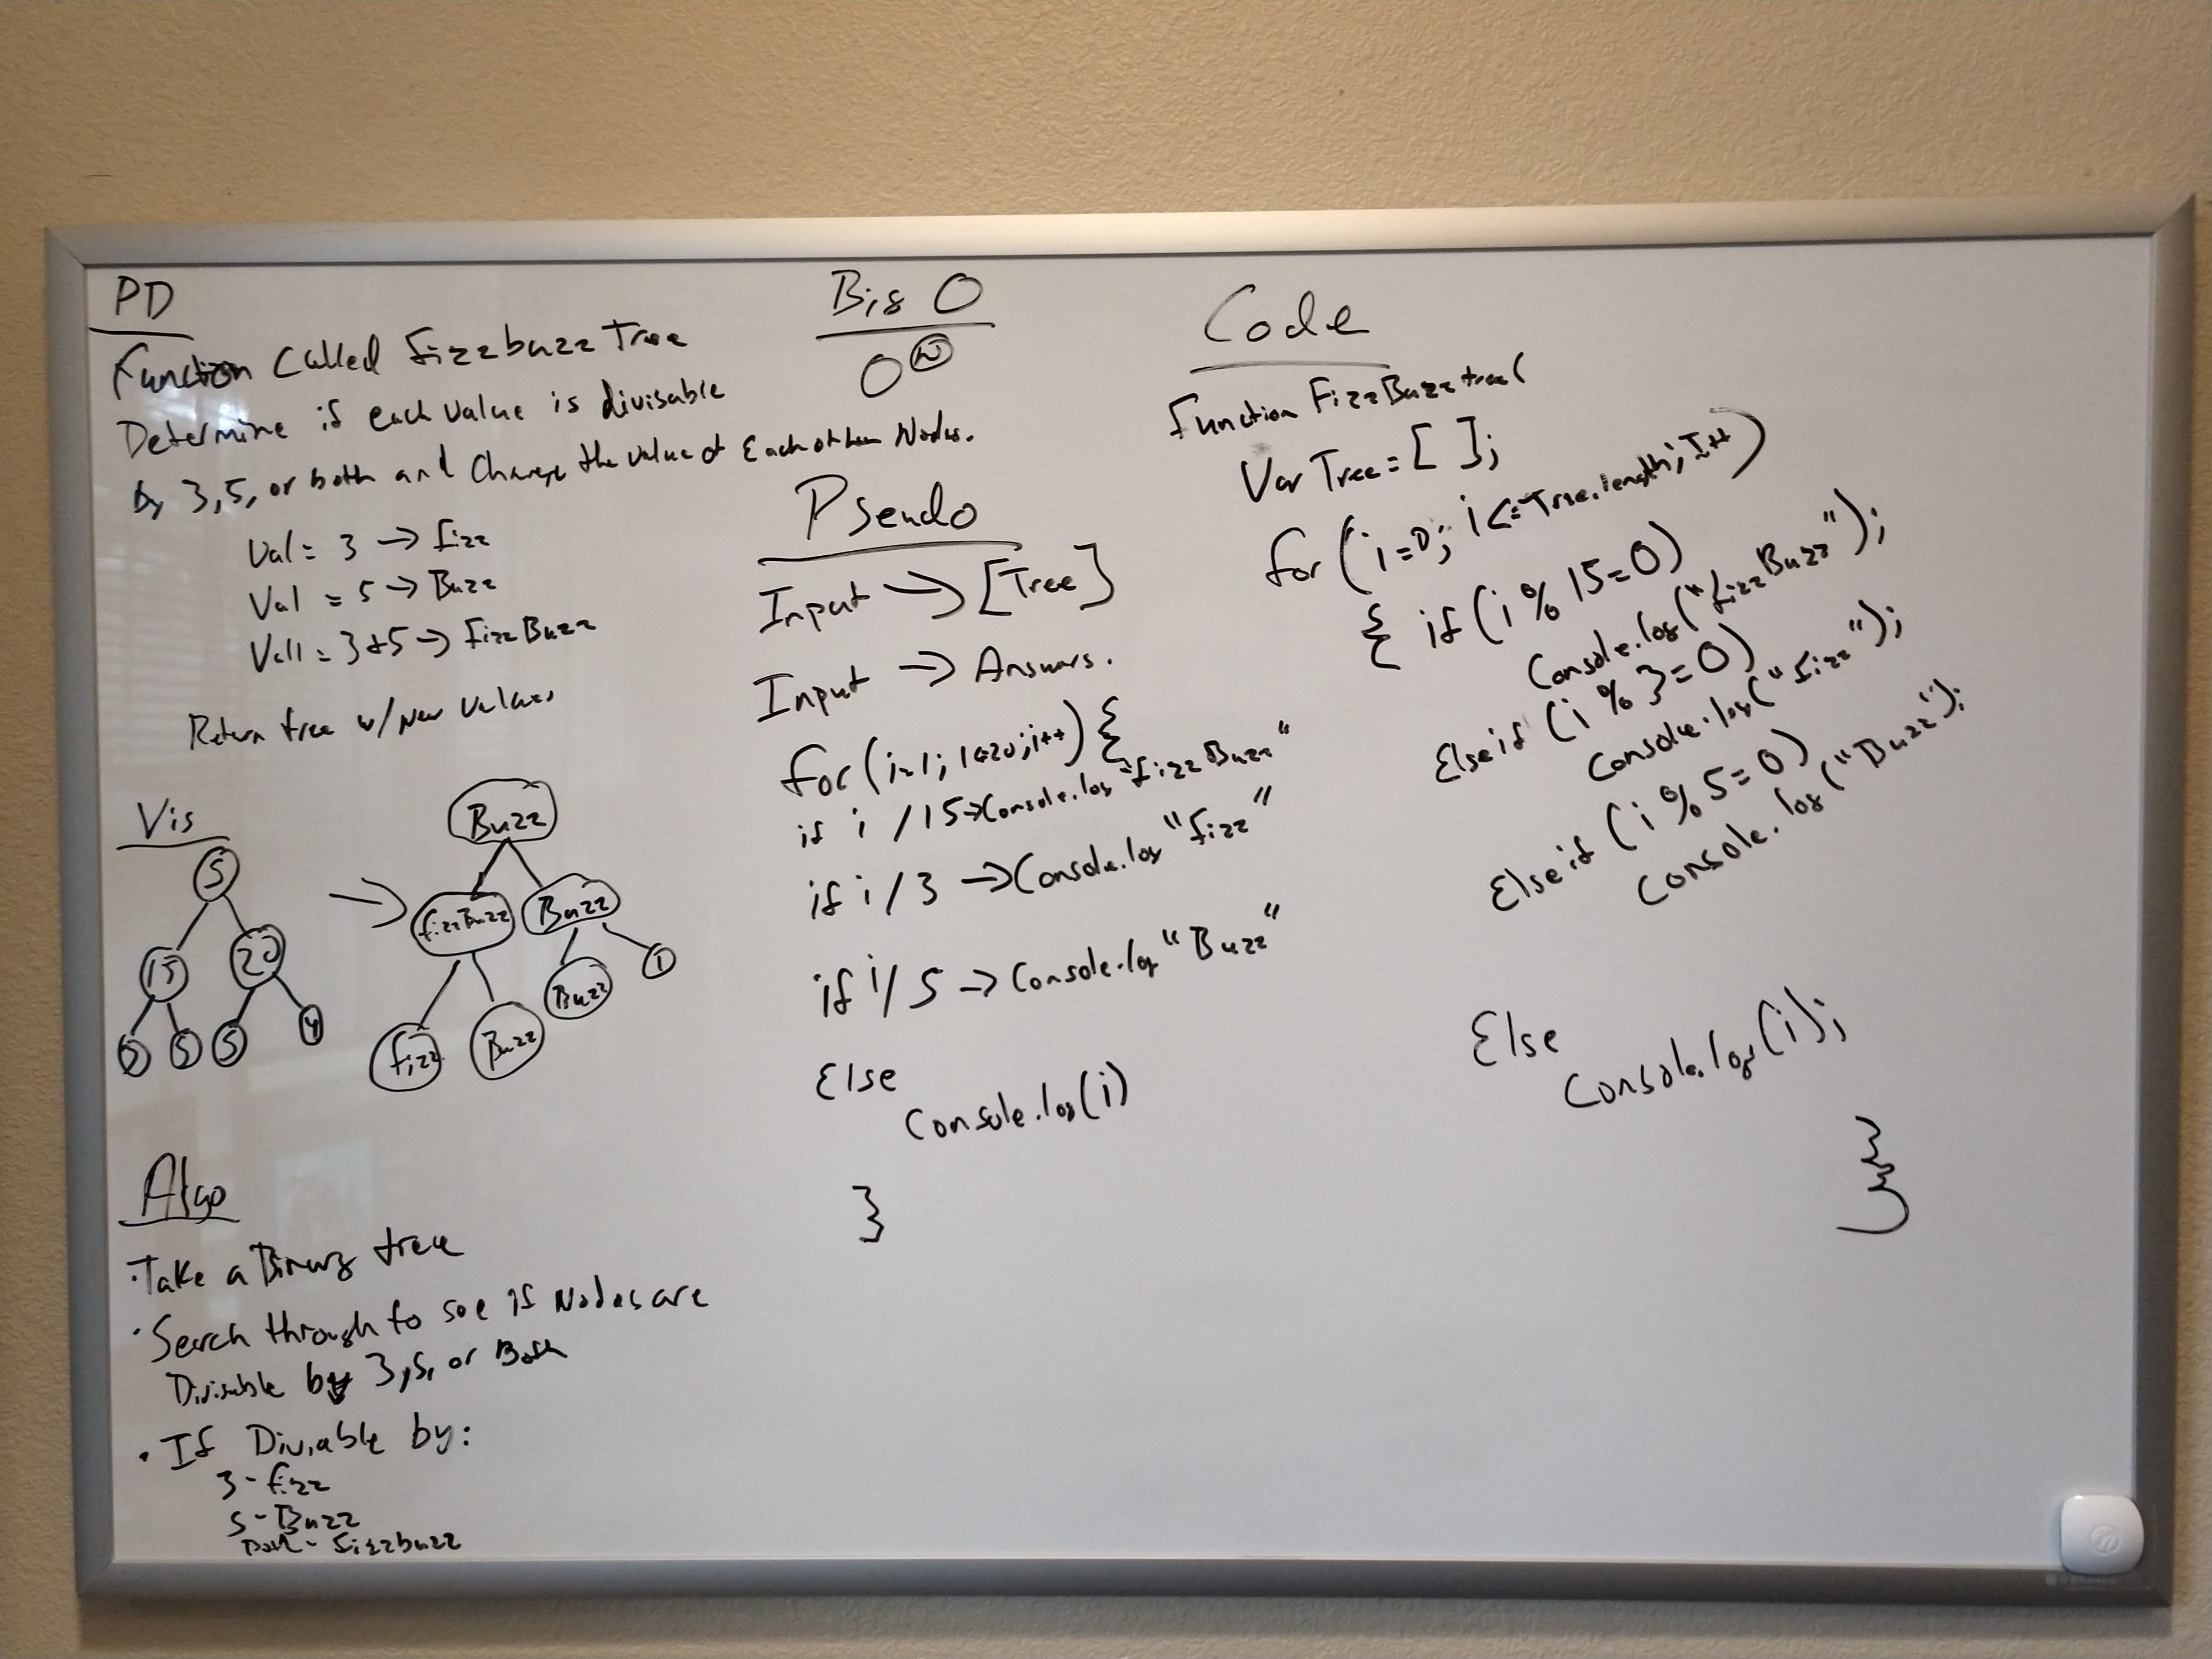 PD
Function Called fizzbuzz Tree
Determine if each value is divisable
by 3,5, or both and Change the value of Each of them Nodes.
Val = 3 → fizz
Val = 5 → Buzz
Vall = 3+5 → FizzBuzz
Return tree w/ New Values
Vis
5
15 20
5 5 4
Buzz
fizzBuzz Buzz
fizz Buzz Buzz 1
Algo
· Take a Binary tree
· Search through to see if Nodes are
Divisable by 3,5, or Both
· If Diviable by:
3 - fizz
5 - Buzz
Both - fizzbuzz
Big O
O(N)
Pseudo
Input → [Tree]
Input → Answars.
for (i=1; i<=20; i++) {
if i /15 → Console.log "fizzBuzz"
if i / 3 → Console.log "fizz"
if i / 5 → Console.log "Buzz"
Else
Console.log(i)
}
Code
Function FizzBuzz tree(
Var Tree = [ ];
for (i=0; i<=Tree.length; I++)
{ if (i % 15=0)
Console.log("fizzBuzz");
Else if (i % 3=0)
Console.log("fizz");
Else if (i % 5=0)
Console.log("Buzz");
Else
Console.log(i);
}